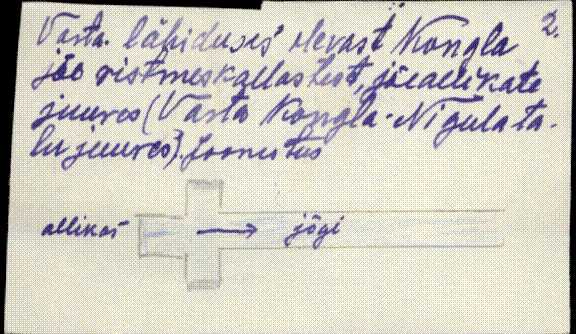 2.
Varta läheduses olevast Kongla
jõe ristmeskallastest, jõeallikate
juures (Varta Kongla-Nigula ta-
lu juures). Joonistus
allikas → jõgi